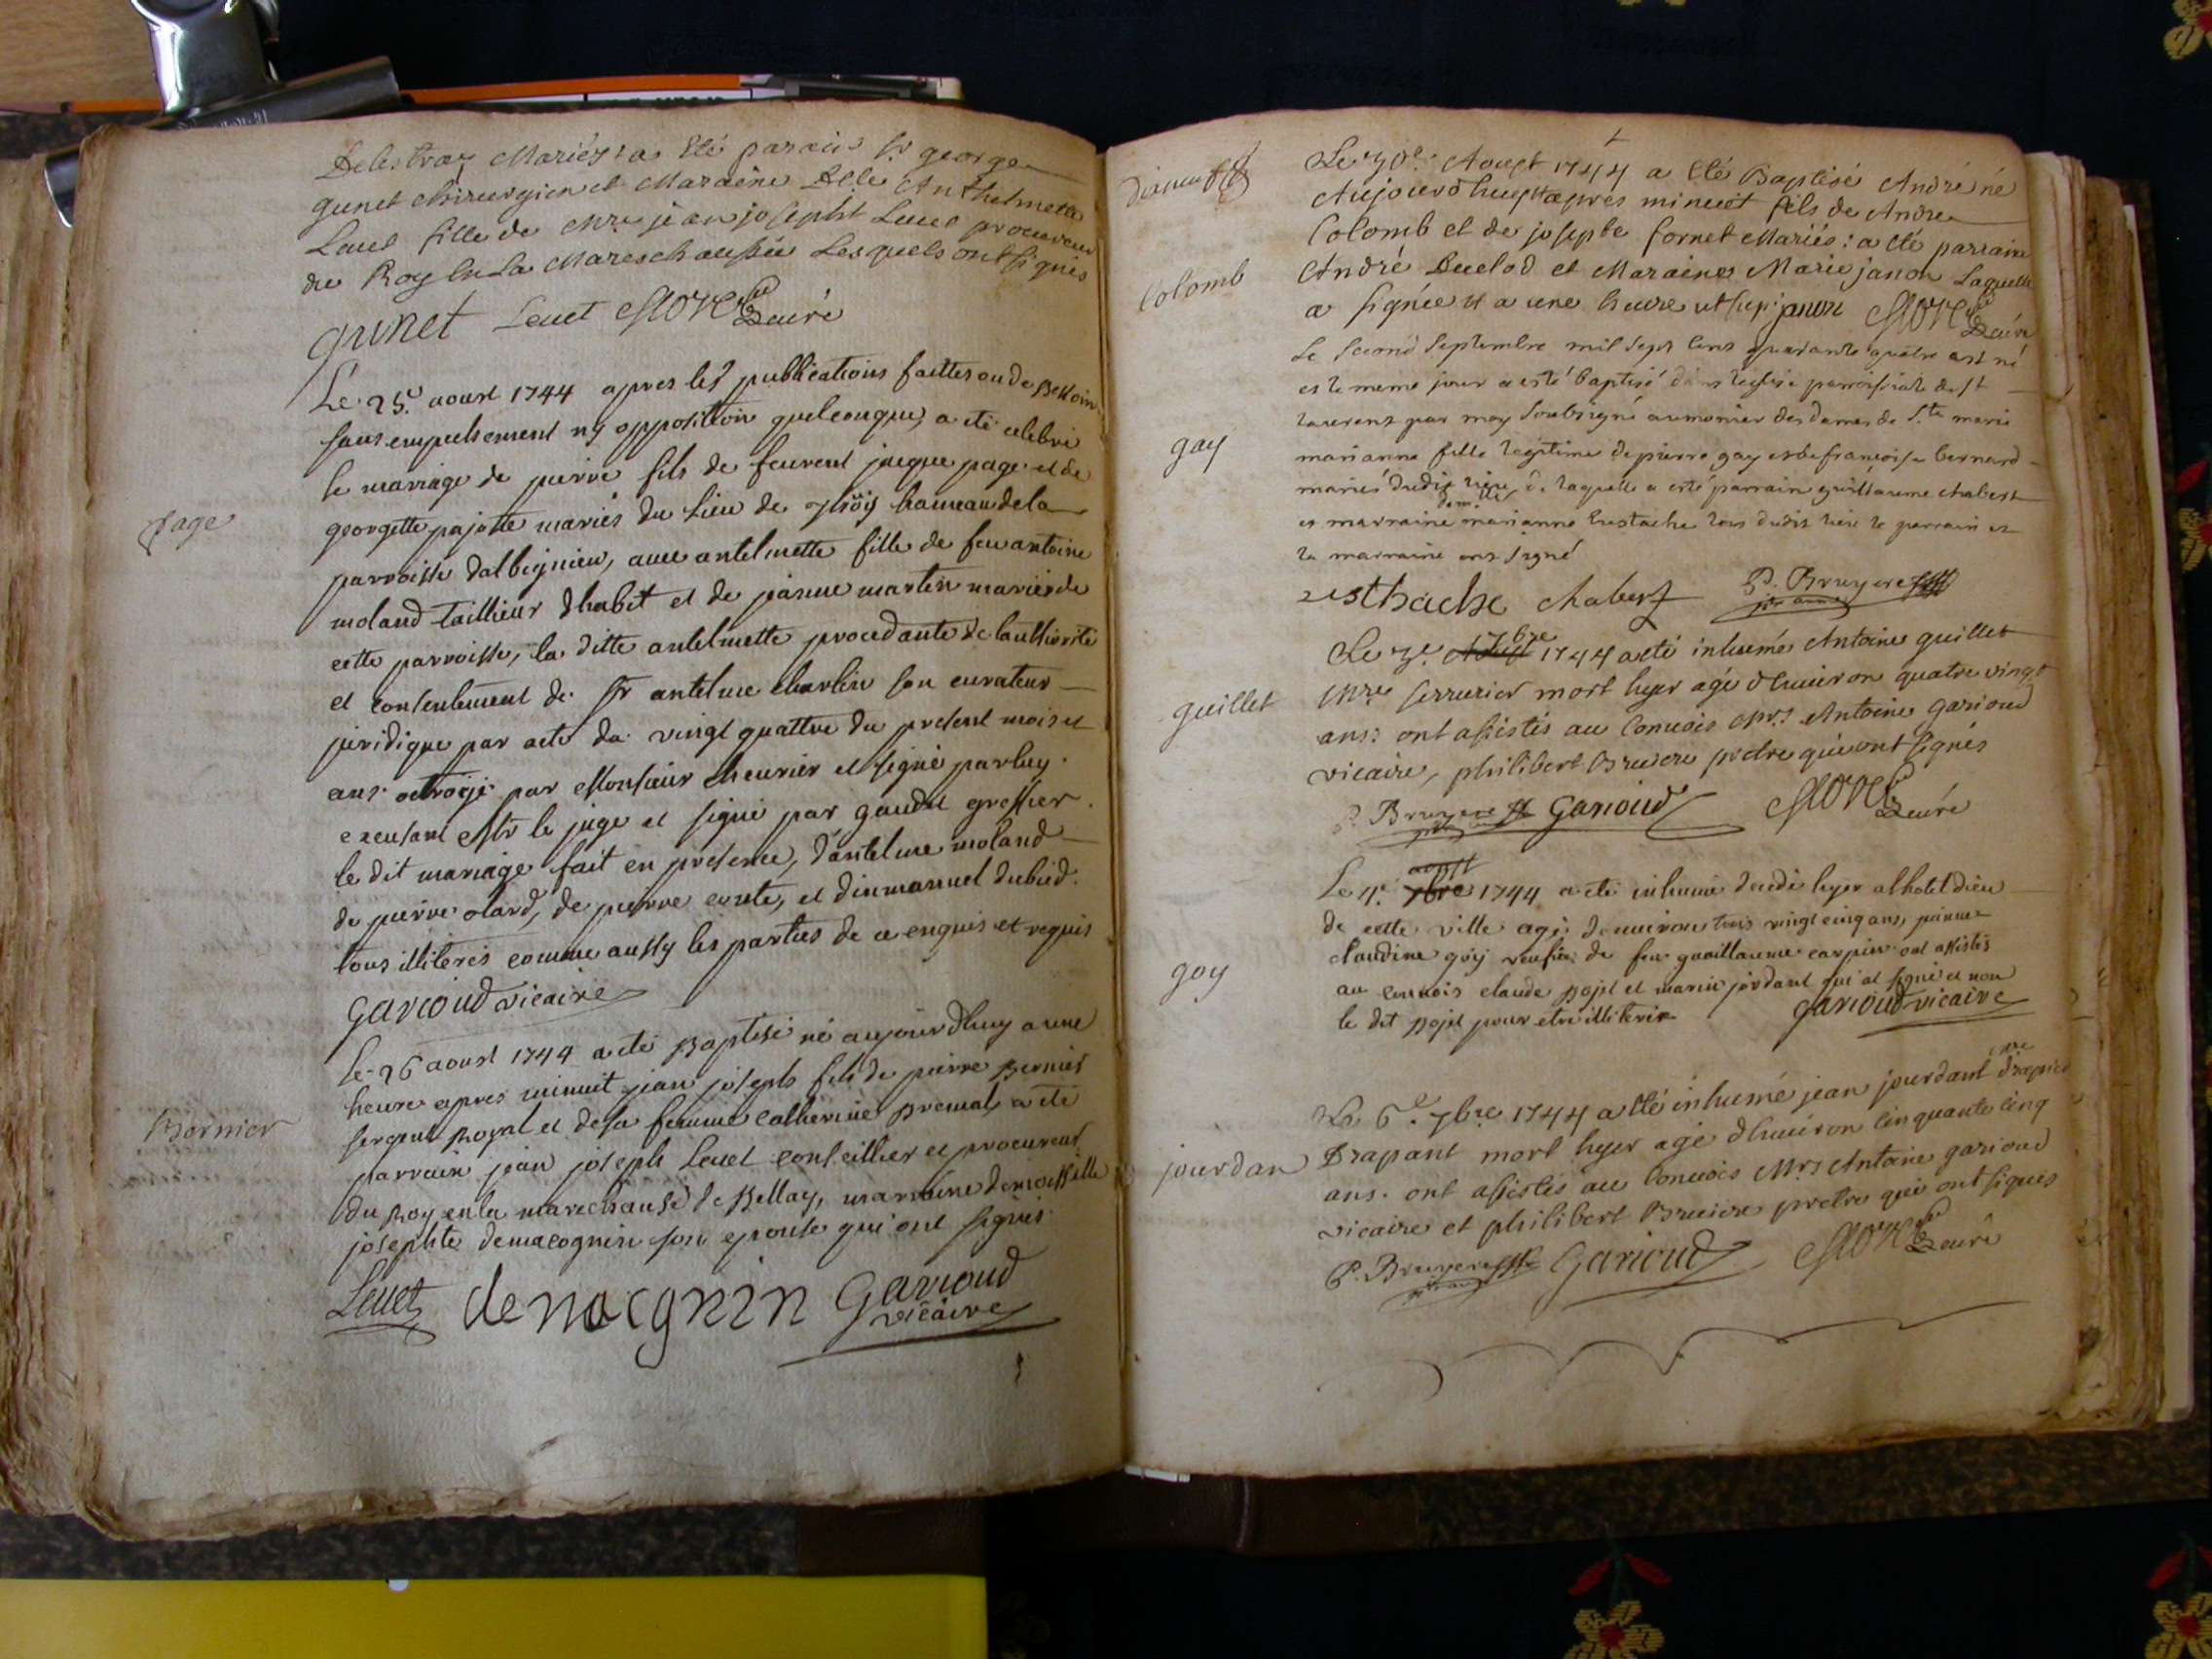 Delestraz Mariés: a été parain Sr george
gunet chirurgien et Maraine Dlle Anthelmete
Levet fille de Mre jean josepht Levet procureur
du Roy en la Mareschaussée Lesquels ont signés
gunet Levet curé
Le 25e aoust 1744 apres les publications faittes ou de Besoin
sans empechement ny opposition quelconque, a été celebré
le mariage de pierre fils de feurent jacque page et de
georgette pajotte mariés du Lieu de hameau de la
page
parroisse dalbignieu, avec antelmette fille de feu antoine
moland taillieur dhabit et de janne martin mariés de
cette parroisse, la ditte antelmette procedante de lauthorité
et consentement de Sr antelme charlin son curateur
juridique par acte du vingt quattre du present mois et
ans octroijé par Monsieur cheurier et signé par luy
exeusant Mr le juge et signé par gaudet greffier
le dit mariage fait en presence, d'antelme moland
de pierre olard, de pierre, et dinmanuel dubied
tous illiterés comme aussy les parties de ce enquis et requis
garioud vicaire
Le 26 aoust 1744 a eté Baptisé né aujourdhuy a une
heure apres minuit jean joseph fils de pierre Bernier
Bernier
sergent Royal et de sa femme catherine premat, a été
parrain jean joseph Levet conseillier et procureur
du Roy en la marechausé de Bellay, marraine demoiselle
josephte demacognin son epouse qui ont signés
Levet demacgnin Garioud
vicaire
Le 30e Aoust 1744 a été Baptisé André né
Aujourdhuy apres minuet fils de Andre
Colomb et de josepte fornet Mariés: a été parrain
Colomb
André Duclod et Maraines Marie janon Laquelle
a signée et a une heure ut sup. janon curé
Le second Septembre mil sept cens quarante quatre est né
et le meme jour a esté baptisé dans leglise parroissiale de st
laurens par moy soubsigné aumonier des dames de Ste marie
gay
marianne fille legitime de pierre gay et de francoise bernard
mariés dudit lieu, de laquelle a esté parrain guillaume chabert
demlle
et marraine marianne Eustache tous dudit lieu le parrain et
la marraine ont signé
Eusthache chabert P. Bruyere
Le 3e 7bre 1744 a été inhumé Antoine guillet
Mre serrurier mort hyer agé dhuiron quatre vingt
guillet
ans: ont assistés au Convois Mrs Antoine garioud
vicaire, philibert Bruiere pretre qui ont signés
P. Bruyere Garioud curé
Le 4e 7bre 1744 a eté inhumé decedé hyer a lhotel dieu
de cette ville agé denuiron trois vingt cinq ans, janne
claudine goÿ veufue de feu guillaume carrier ont assistés
goy
au conuois claude pojet et marin jordant qui at signé et non
le dit pojet pour etre illiteré garioud vicaire
Le 6e 7bre 1744 a été inhumé jean jourdant Mre drapier
Drapant mort hyer agé dhuiron Cinquante Cinq
jourdan
ans. ont assistés au Convois Mrs Antoine garioud
vicaire et philibert Bruiere pretre qui ont signés
P. Bruyere Garioud curé